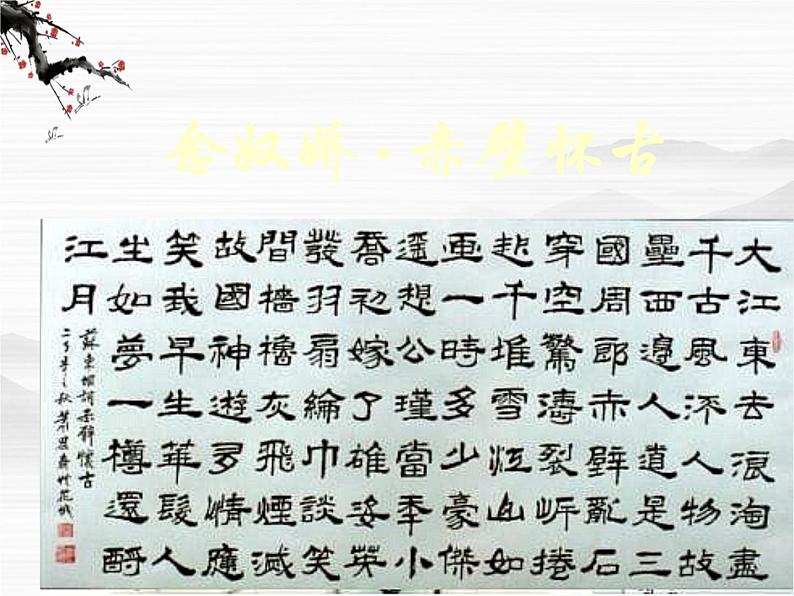 念奴娇·赤壁怀古
大江東去浪淘盡
千古風流人物故
壘西邊人道是三
國周郎赤壁亂石
穿空驚濤裂岸捲
起千堆雪江山如
画一時多少豪傑
遥想公瑾當年小
喬初嫁了雄姿英
發羽扇綸巾談笑
間檣櫓灰飛煙滅
故國神遊多情應
笑我早生華髮人
生如夢一樽還酹
江月
蘇東坡詞赤壁懷古